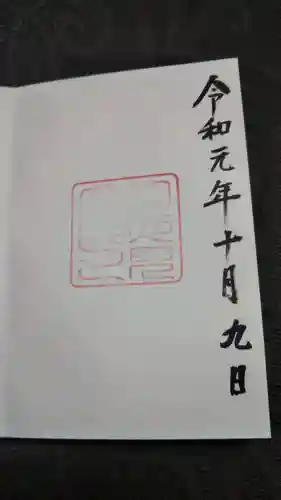 令和元年十月九日